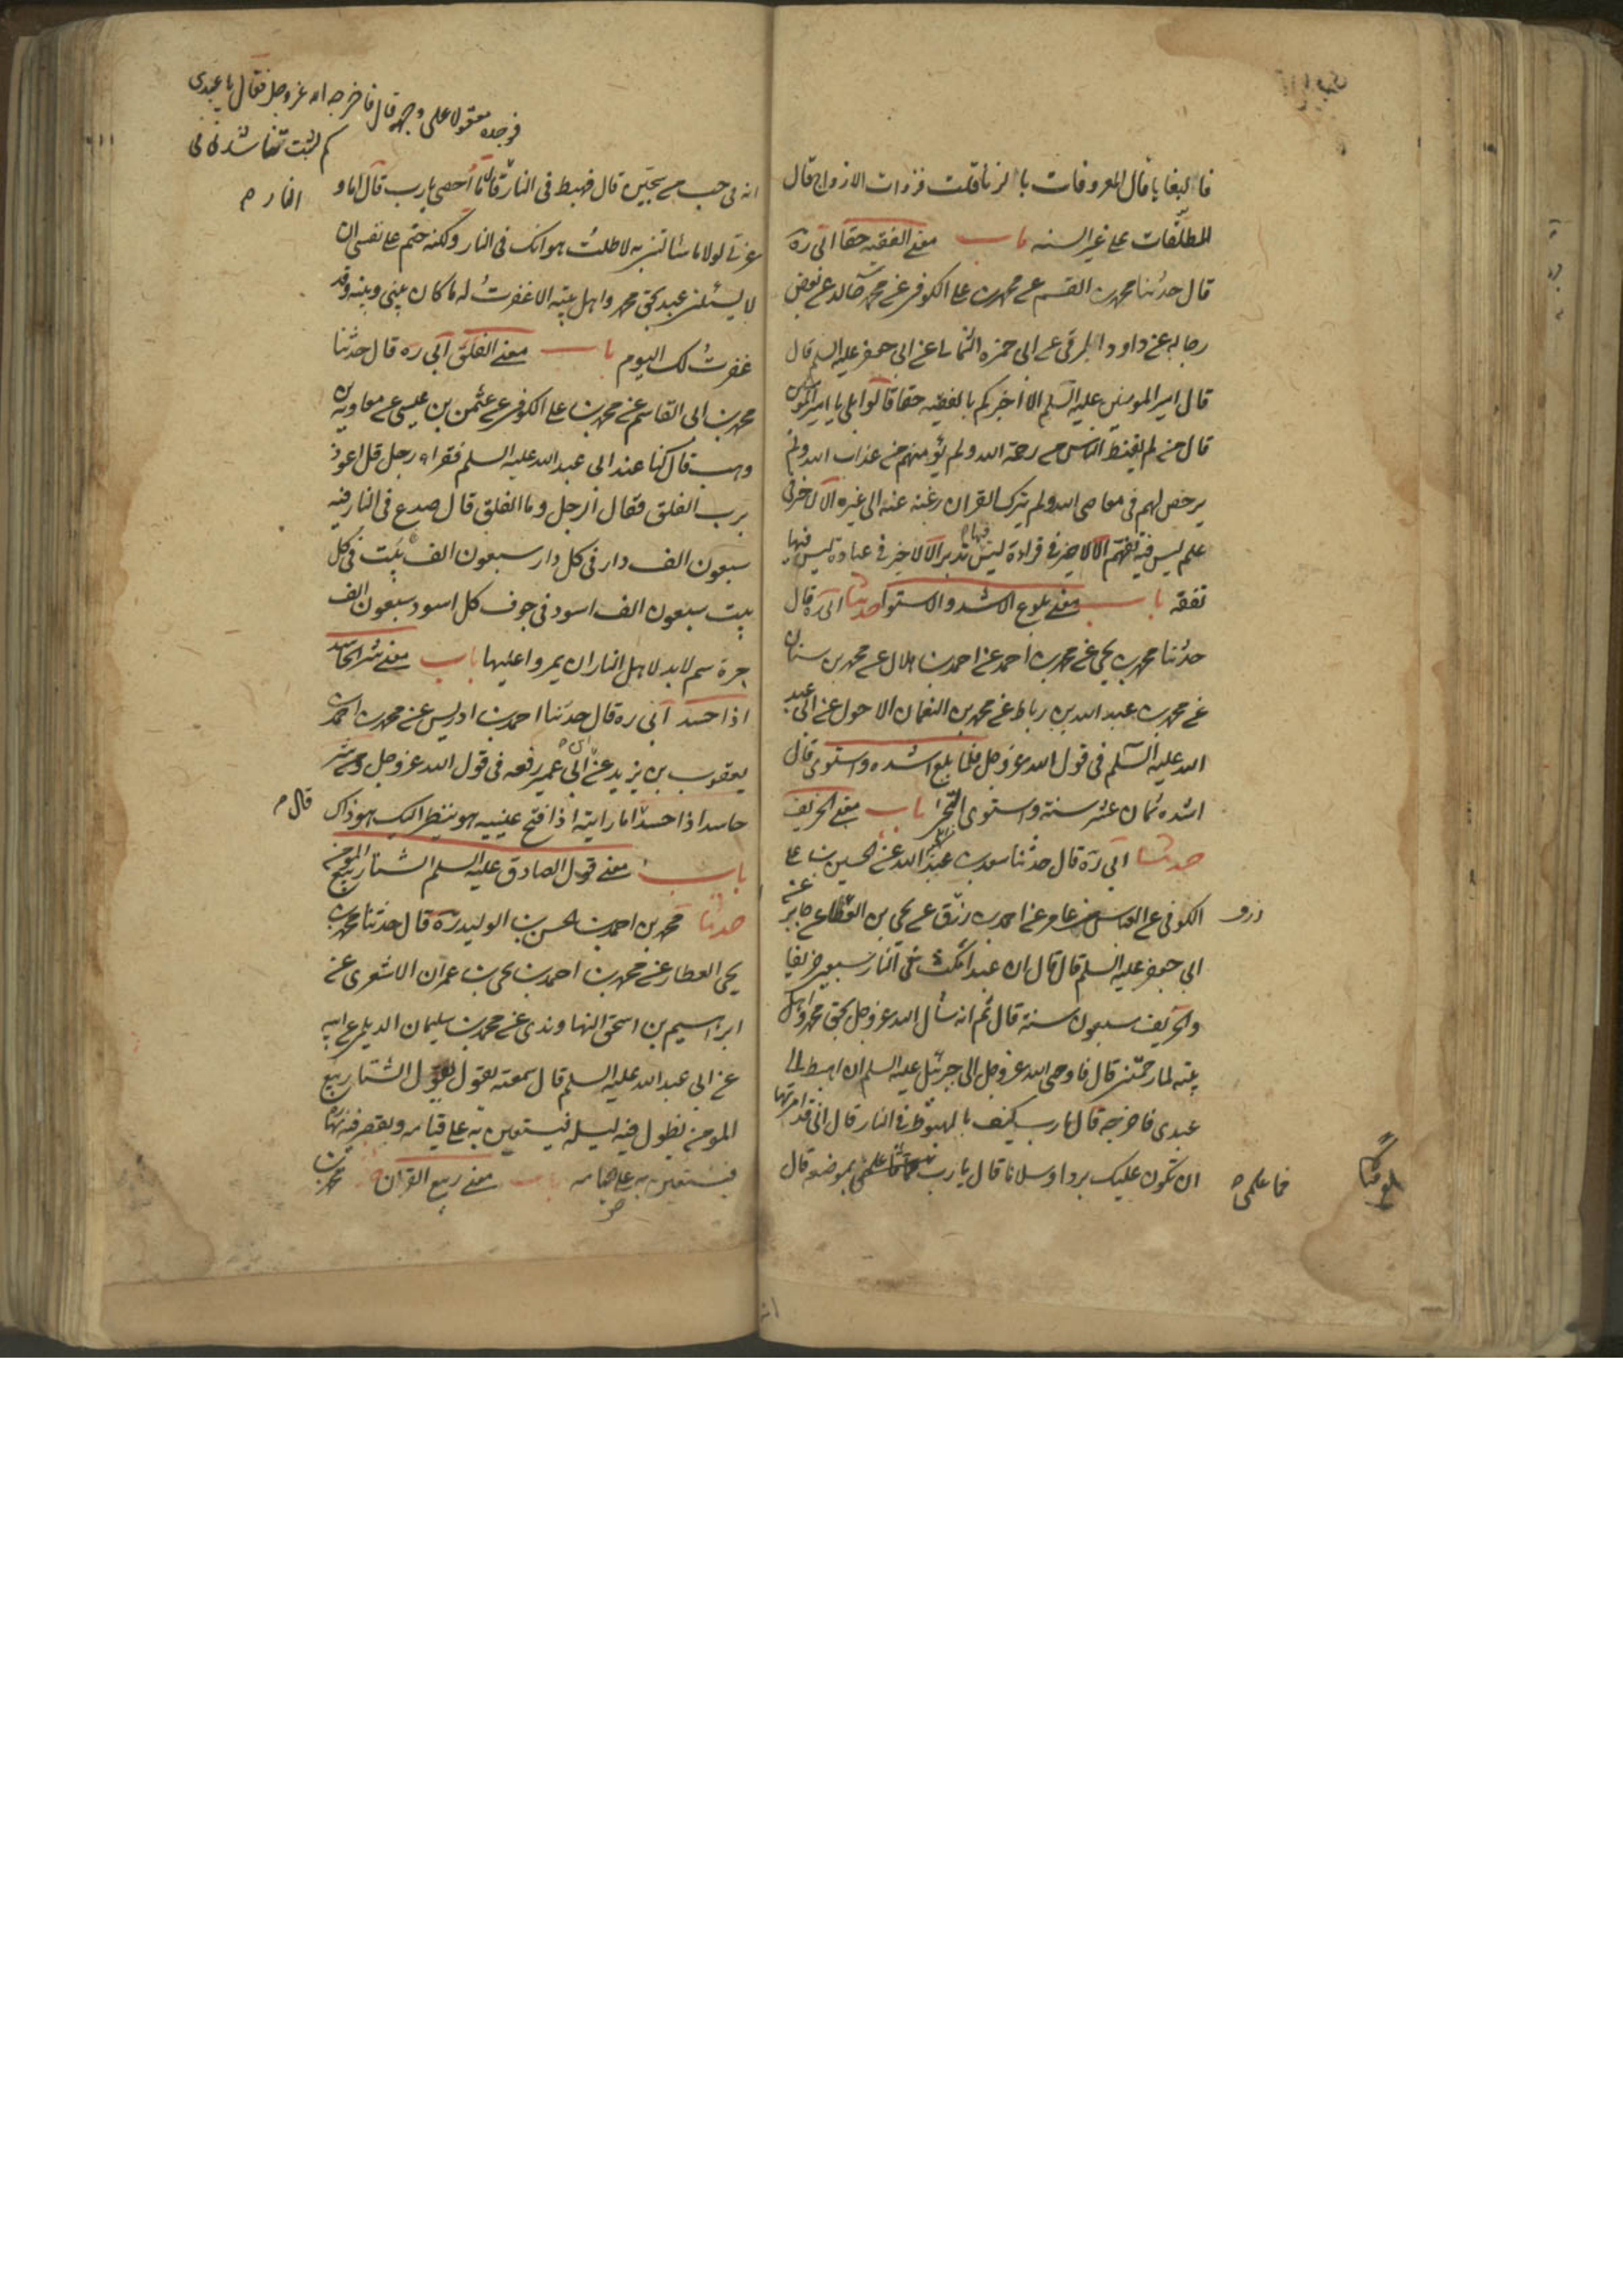 فالبغايا قال المعروفات بالزنا قلت فذوات الازواج قال
المطلقات على غير السنه باب معنى الفقيه حقا ابى ره
قال حدثنا محمد بن القسم عن محمد بن على الكوفى عن محمد بن خالد عن بعض
رجاله عن داود الرقى عن ابى حمزه الثمالى عن ابى جعفر عليه السلم قال
قال امير المومنين عليه السلم الا اخبركم بالفقيه حقا قالوا بلى يا امير المومنين
قال من لم يقنط الناس من رحمة الله ولم يؤمنهم من عذاب الله ولم
يرخص لهم فى معاصى الله ولم يترك القران رغبة عنه الى غيره الا لا خير فى
علم ليس فيه تفهم الا لا خير فى قراءة ليس فيها تدبر الا لا خير فى عبادة ليس فيها
تفقه باب معنى بلوغ الاشد والاستوا حدثنا ابى ره قال
حدثنا محمد بن يحيى عن محمد بن احمد عن احمد بن هلال عن محمد بن سنان
عن محمد بن عبد الله بن رباط عن محمد بن النعمان الاحول عن ابى عبد
الله عليه السلم فى قول الله عز وجل فلما بلغ اشده واستوى قال
اشده ثمان عشر سنة واستوى التحى باب معنى الخريف
حدثنا ابى ره قال حدثنا سعد بن عبد الله عن الحسين بن على
الكوفى عن العباس بن عامر عن احمد بن رزق عن يحيى بن العلا عن جابر عن
رزق
ابى جعفر عليه السلم قال قال ان عبدا مكث فى النار سبعين خريفا
والخريف سبعون سنة قال ثم انه سأل الله عز وجل بحق محمد واهل
بيته لما رحمتنى قال فاوحى الله عز وجل الى جبرئيل عليه السلم ان اهبط الى
عبدى فاخرجه قال يا رب كيف بالهبوط فى النار قال انى قد امرتها
ان تكون عليك بردا وسلاما قال يا رب فما علمى بموضعه قال
فما علمى
بلغ قبالا
فوجده معقولا على وجهه قال فاخرجه الله عز وجل فقال يا عبدى
كم لبثت تناشدنى فى
النار
انه فى جب من سجين قال فهبط فى النار قال ما احصى يا رب قال اما و
عزتى لولا ما سالتنى به لاطلت هوانك فى النار ولكنه حتم على نفسى ان
لا يسئلنى عبد بحق محمد واهل بيته الا غفرت له ما كان بينى وبينه وقد
غفرت لك اليوم باب معنى الفلق ابى ره قال حدثنا
محمد بن ابى القاسم عن محمد بن على الكوفى عن عثمن بن عيسى عن معاوية بن
وهب قال كنا عند ابى عبد الله عليه السلم فقراه رجل قل اعوذ
برب الفلق فقال الرجل وما الفلق قال صدع فى النار فيه
سبعون الف دار فى كل دار سبعون الف بيت فى كل
بيت سبعون الف اسود فى جوف كل اسود سبعون الف
جرة سم لا بد لاهل النار ان يمروا عليها باب معنى شر الحاسد
اذا حسد ابى ره قال حدثنا احمد بن ادريس عن محمد بن احمد عن
يعقوب بن يزيد عن ابن ابى عمير رفعه فى قول الله عز وجل ومن شر
حاسد اذا حسد اما رايته اذا فتح عينيه هو ينظر اليك هو ذاك
قال
باب معنى قول الصادق عليه السلم الشتا ربيع المومن
حدثنا محمد بن احمد بن الحسن بن الوليد ره قال حدثنا محمد بن
يحيى العطار عن محمد بن احمد بن يحيى بن عمران الاشعرى عن
ابراهيم بن اسحق النهاوندى عن محمد بن سليمان الديلمى عن ابيه
عن ابى عبد الله عليه السلم قال سمعته يقول يقول الشتا ربيع
المومن يطول فيه ليله فيستعين به على قيامه ويقصر فيه نهاره
فيستعين به على صيامه باب معنى ربيع القران محمد بن